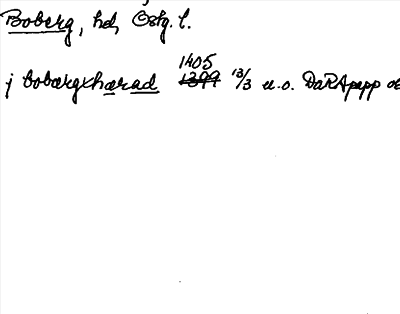 Boberg, hd, Östg. l.
1405
j bobærgxhærad 1399 13/3 u.o. DaRApapp